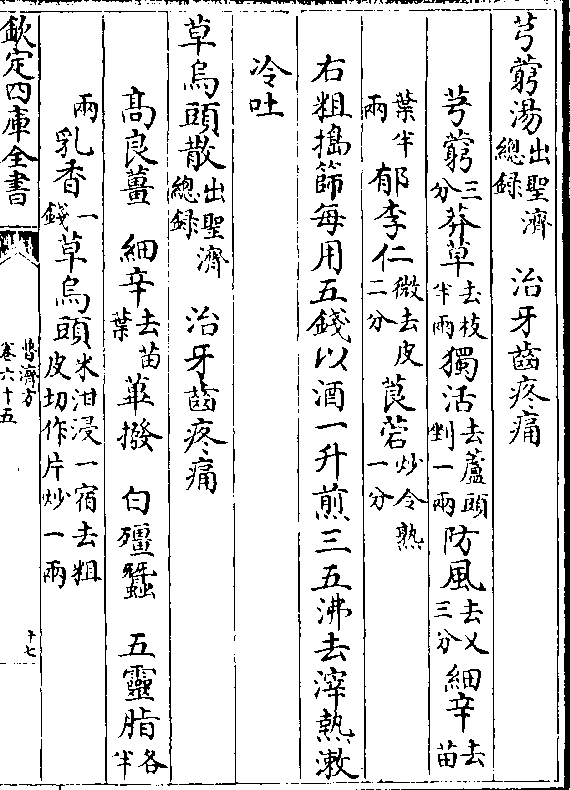 芎藭湯出聖濟總録　治牙齒疼痛
芎藭三分莽草去枝半兩獨活去蘆頭剉一兩防風去乂三分細辛去苗
葉半兩郁李仁微去皮二分莨菪炒令熟一分
右粗搗篩每用五錢以酒一升煎三五沸去滓熱漱
冷吐
草烏頭散出聖濟總録　治牙齒疼痛
高良薑　細辛去苗葉　蓽撥　白殭蠶　五靈脂各半
兩乳香一錢草烏頭米泔浸一宿去粗皮切作片炒一兩
欽定四庫全書　普濟方卷六十五　十七